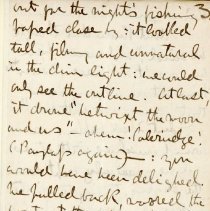 out for the night's fishing 3
roped close by: it looked
tall, filmy and unnatural
in the dim light: we could
only see the outline. At last
it drove "betwixt the moon
and us" - ahem! Coleridge!
(Perhaps again) - : you
would have been delighted
he pulled back, crossed the